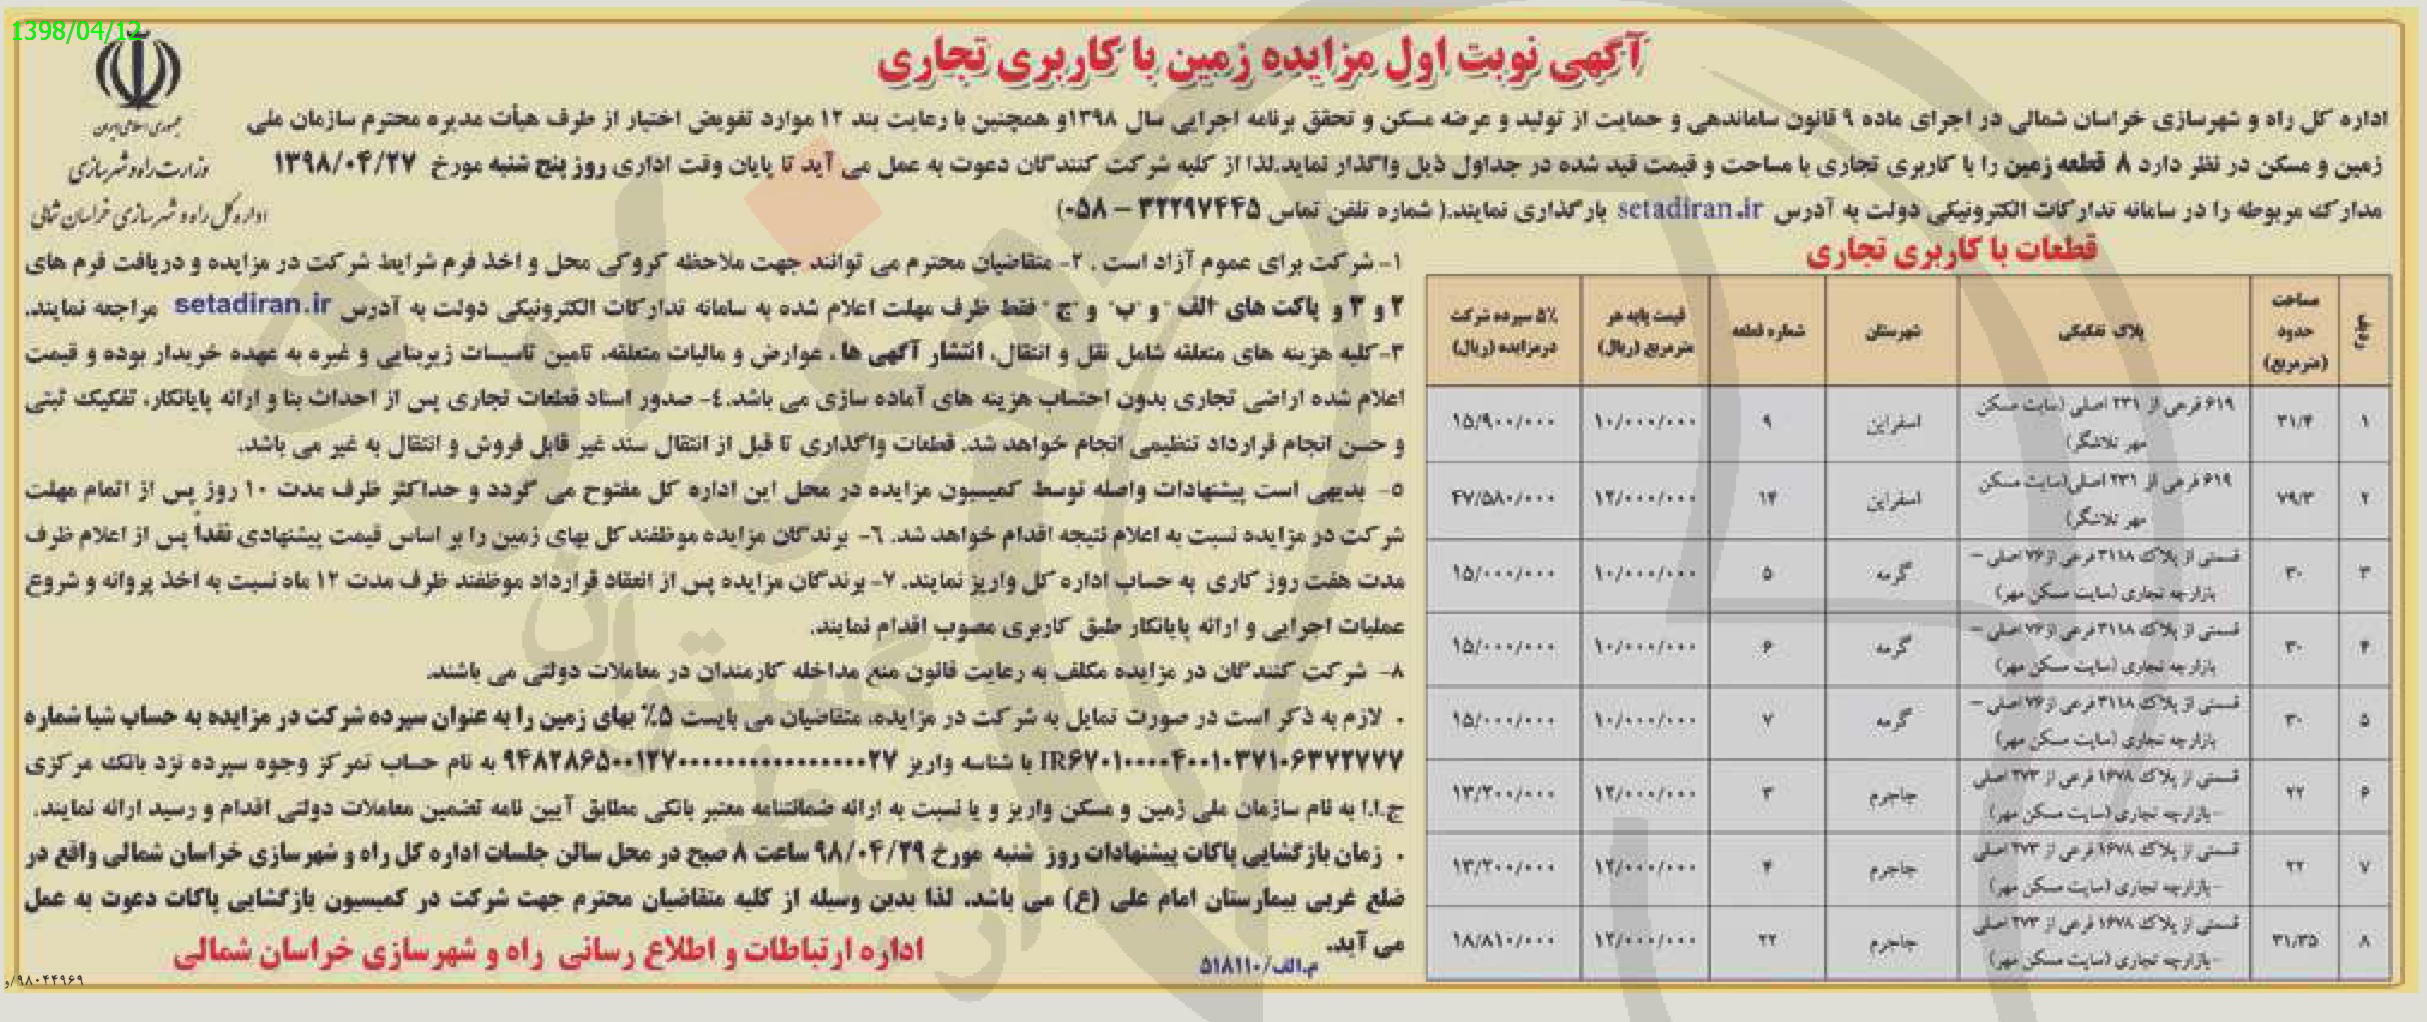 1398/04/12
آگهی نوبت اول مزایده زمین با کاربری تجاری
جمهوری اسلامی ایران
وزارت راه و شهرسازی
اداره کل راه و شهرسازی خراسان شمالی
اداره کل راه و شهرسازی خراسان شمالی در اجرای ماده ۹ قانون ساماندهی و حمایت از تولید و عرضه مسکن و تحقق برنامه اجرایی سال ۱۳۹۸و همچنین با رعایت بند ۱۲ موارد تفویض اختیار از طرف هیأت مدیره محترم سازمان ملی
زمین و مسکن در نظر دارد ۸ قطعه زمین را با کاربری تجاری با مساحت و قیمت قید شده در جداول ذیل واگذار نماید.لذا از کلیه شرکت کنندگان دعوت به عمل می آید تا پایان وقت اداری روز پنج شنبه مورخ ۱۳۹۸/۰۴/۲۷
مدارک مربوطه را در سامانه تدارکات الکترونیکی دولت به آدرس setadiran.ir بارگذاری نمایند.( شماره تلفن تماس ۳۲۲۹۷۴۴۵ – ۰۵۸)
قطعات با کاربری تجاری
ردیف | مساحت حدود (مترمربع) | پلاک تفکیکی | شهرستان | شماره قطعه | قیمت پایه هر مترمربع (ریال) | ۵٪ سپرده شرکت درمزایده (ریال)
۱ | ۳۱/۴ | ۶۱۹ فرعی از ۲۳۱ اصلی (سایت مسکن مهر تلاشگر) | اسفراین | ۹ | ۱۰/۰۰۰/۰۰۰ | ۱۵/۹۰۰/۰۰۰
۲ | ۷۹/۳ | ۶۱۹ فرعی از ۲۳۱ اصلی(سایت مسکن مهر تلاشگر) | اسفراین | ۱۴ | ۱۲/۰۰۰/۰۰۰ | ۴۷/۵۸۰/۰۰۰
۳ | ۳۰ | قسمتی از پلاک ۳۱۱۸ فرعی از ۷۶ اصلی – بازارچه تجاری (سایت مسکن مهر) | گرمه | ۵ | ۱۰/۰۰۰/۰۰۰ | ۱۵/۰۰۰/۰۰۰
۴ | ۳۰ | قسمتی از پلاک ۳۱۱۸ فرعی از ۷۶ اصلی – بازارچه تجاری (سایت مسکن مهر) | گرمه | ۶ | ۱۰/۰۰۰/۰۰۰ | ۱۵/۰۰۰/۰۰۰
۵ | ۳۰ | قسمتی از پلاک ۳۱۱۸ فرعی از ۷۶ اصلی – بازارچه تجاری (سایت مسکن مهر) | گرمه | ۷ | ۱۰/۰۰۰/۰۰۰ | ۱۵/۰۰۰/۰۰۰
۶ | ۲۲ | قسمتی از پلاک ۱۶۷۸ فرعی از ۲۷۳ اصلی – بازارچه تجاری (سایت مسکن مهر) | جاجرم | ۳ | ۱۲/۰۰۰/۰۰۰ | ۱۳/۲۰۰/۰۰۰
۷ | ۲۲ | قسمتی از پلاک ۱۶۷۸ فرعی از ۲۷۳ اصلی – بازارچه تجاری (سایت مسکن مهر) | جاجرم | ۴ | ۱۲/۰۰۰/۰۰۰ | ۱۳/۲۰۰/۰۰۰
۸ | ۳۱/۳۵ | قسمتی از پلاک ۱۶۷۸ فرعی از ۲۷۳ اصلی – بازارچه تجاری (سایت مسکن مهر) | جاجرم | ۲۲ | ۱۲/۰۰۰/۰۰۰ | ۱۸/۸۱۰/۰۰۰
۱- شرکت برای عموم آزاد است . ۲- متقاضیان محترم می توانند جهت ملاحظه کروکی محل و اخذ فرم شرایط شرکت در مزایده و دریافت فرم های
۲ و ۳ و پاکت های "الف" و "ب" و "ج" فقط ظرف مهلت اعلام شده به سامانه تدارکات الکترونیکی دولت به آدرس setadiran.ir مراجعه نمایند.
۳-کلیه هزینه های متعلقه شامل نقل و انتقال، انتشار آگهی ها ، عوارض و مالیات متعلقه، تامین تاسیسات زیربنایی و غیره به عهده خریدار بوده و قیمت
اعلام شده اراضی تجاری بدون احتساب هزینه های آماده سازی می باشد.٤- صدور اسناد قطعات تجاری پس از احداث بنا و ارائه پایانکار، تفکیک ثبتی
و حسن انجام قرارداد تنظیمی انجام خواهد شد. قطعات واگذاری تا قبل از انتقال سند غیر قابل فروش و انتقال به غیر می باشد.
۵- بدیهی است پیشنهادات واصله توسط کمیسیون مزایده در محل این اداره کل مفتوح می گردد و حداکثر ظرف مدت ۱۰ روز پس از اتمام مهلت
شرکت در مزایده نسبت به اعلام نتیجه اقدام خواهد شد. ٦- برندگان مزایده موظفند کل بهای زمین را بر اساس قیمت پیشنهادی نقداً پس از اعلام ظرف
مدت هفت روز کاری به حساب اداره کل واریز نمایند. ۷- برندگان مزایده پس از انعقاد قرارداد موظفند ظرف مدت ۱۲ ماه نسبت به اخذ پروانه و شروع
عملیات اجرایی و ارائه پایانکار طبق کاربری مصوب اقدام نمایند.
۸- شرکت کنندگان در مزایده مکلف به رعایت قانون منع مداخله کارمندان در معاملات دولتی می باشند.
. لازم به ذکر است در صورت تمایل به شرکت در مزایده، متقاضیان می بایست ۵٪ بهای زمین را به عنوان سپرده شرکت در مزایده به حساب شبا شماره
IR۶۷۰۱۰۰۰۰۴۰۰۱۰۳۷۱۰۶۳۷۲۷۷۷ با شناسه واریز ۹۴۸۲۸۶۵۰۰۱۲۷۰۰۰۰۰۰۰۰۰۰۰۰۰۰۰۰۲۷ به نام حساب تمرکز وجوه سپرده نزد بانک مرکزی
ج.ا.ا به نام سازمان ملی زمین و مسکن واریز و یا نسبت به ارائه ضمانتنامه معتبر بانکی مطابق آیین نامه تضمین معاملات دولتی اقدام و رسید ارائه نمایند.
. زمان بازگشایی پاکات پیشنهادات روز شنبه مورخ ۹۸/۰۴/۲۹ ساعت ۸ صبح در محل سالن جلسات اداره کل راه و شهرسازی خراسان شمالی واقع در
ضلع غربی بیمارستان امام علی (ع) می باشد. لذا بدین وسیله از کلیه متقاضیان محترم جهت شرکت در کمیسیون بازگشایی پاکات دعوت به عمل
می آید.
م.الف/۵۱۸۱۱۰
اداره ارتباطات و اطلاع رسانی راه و شهرسازی خراسان شمالی
۹۸۰۴۴۹۶۹/و